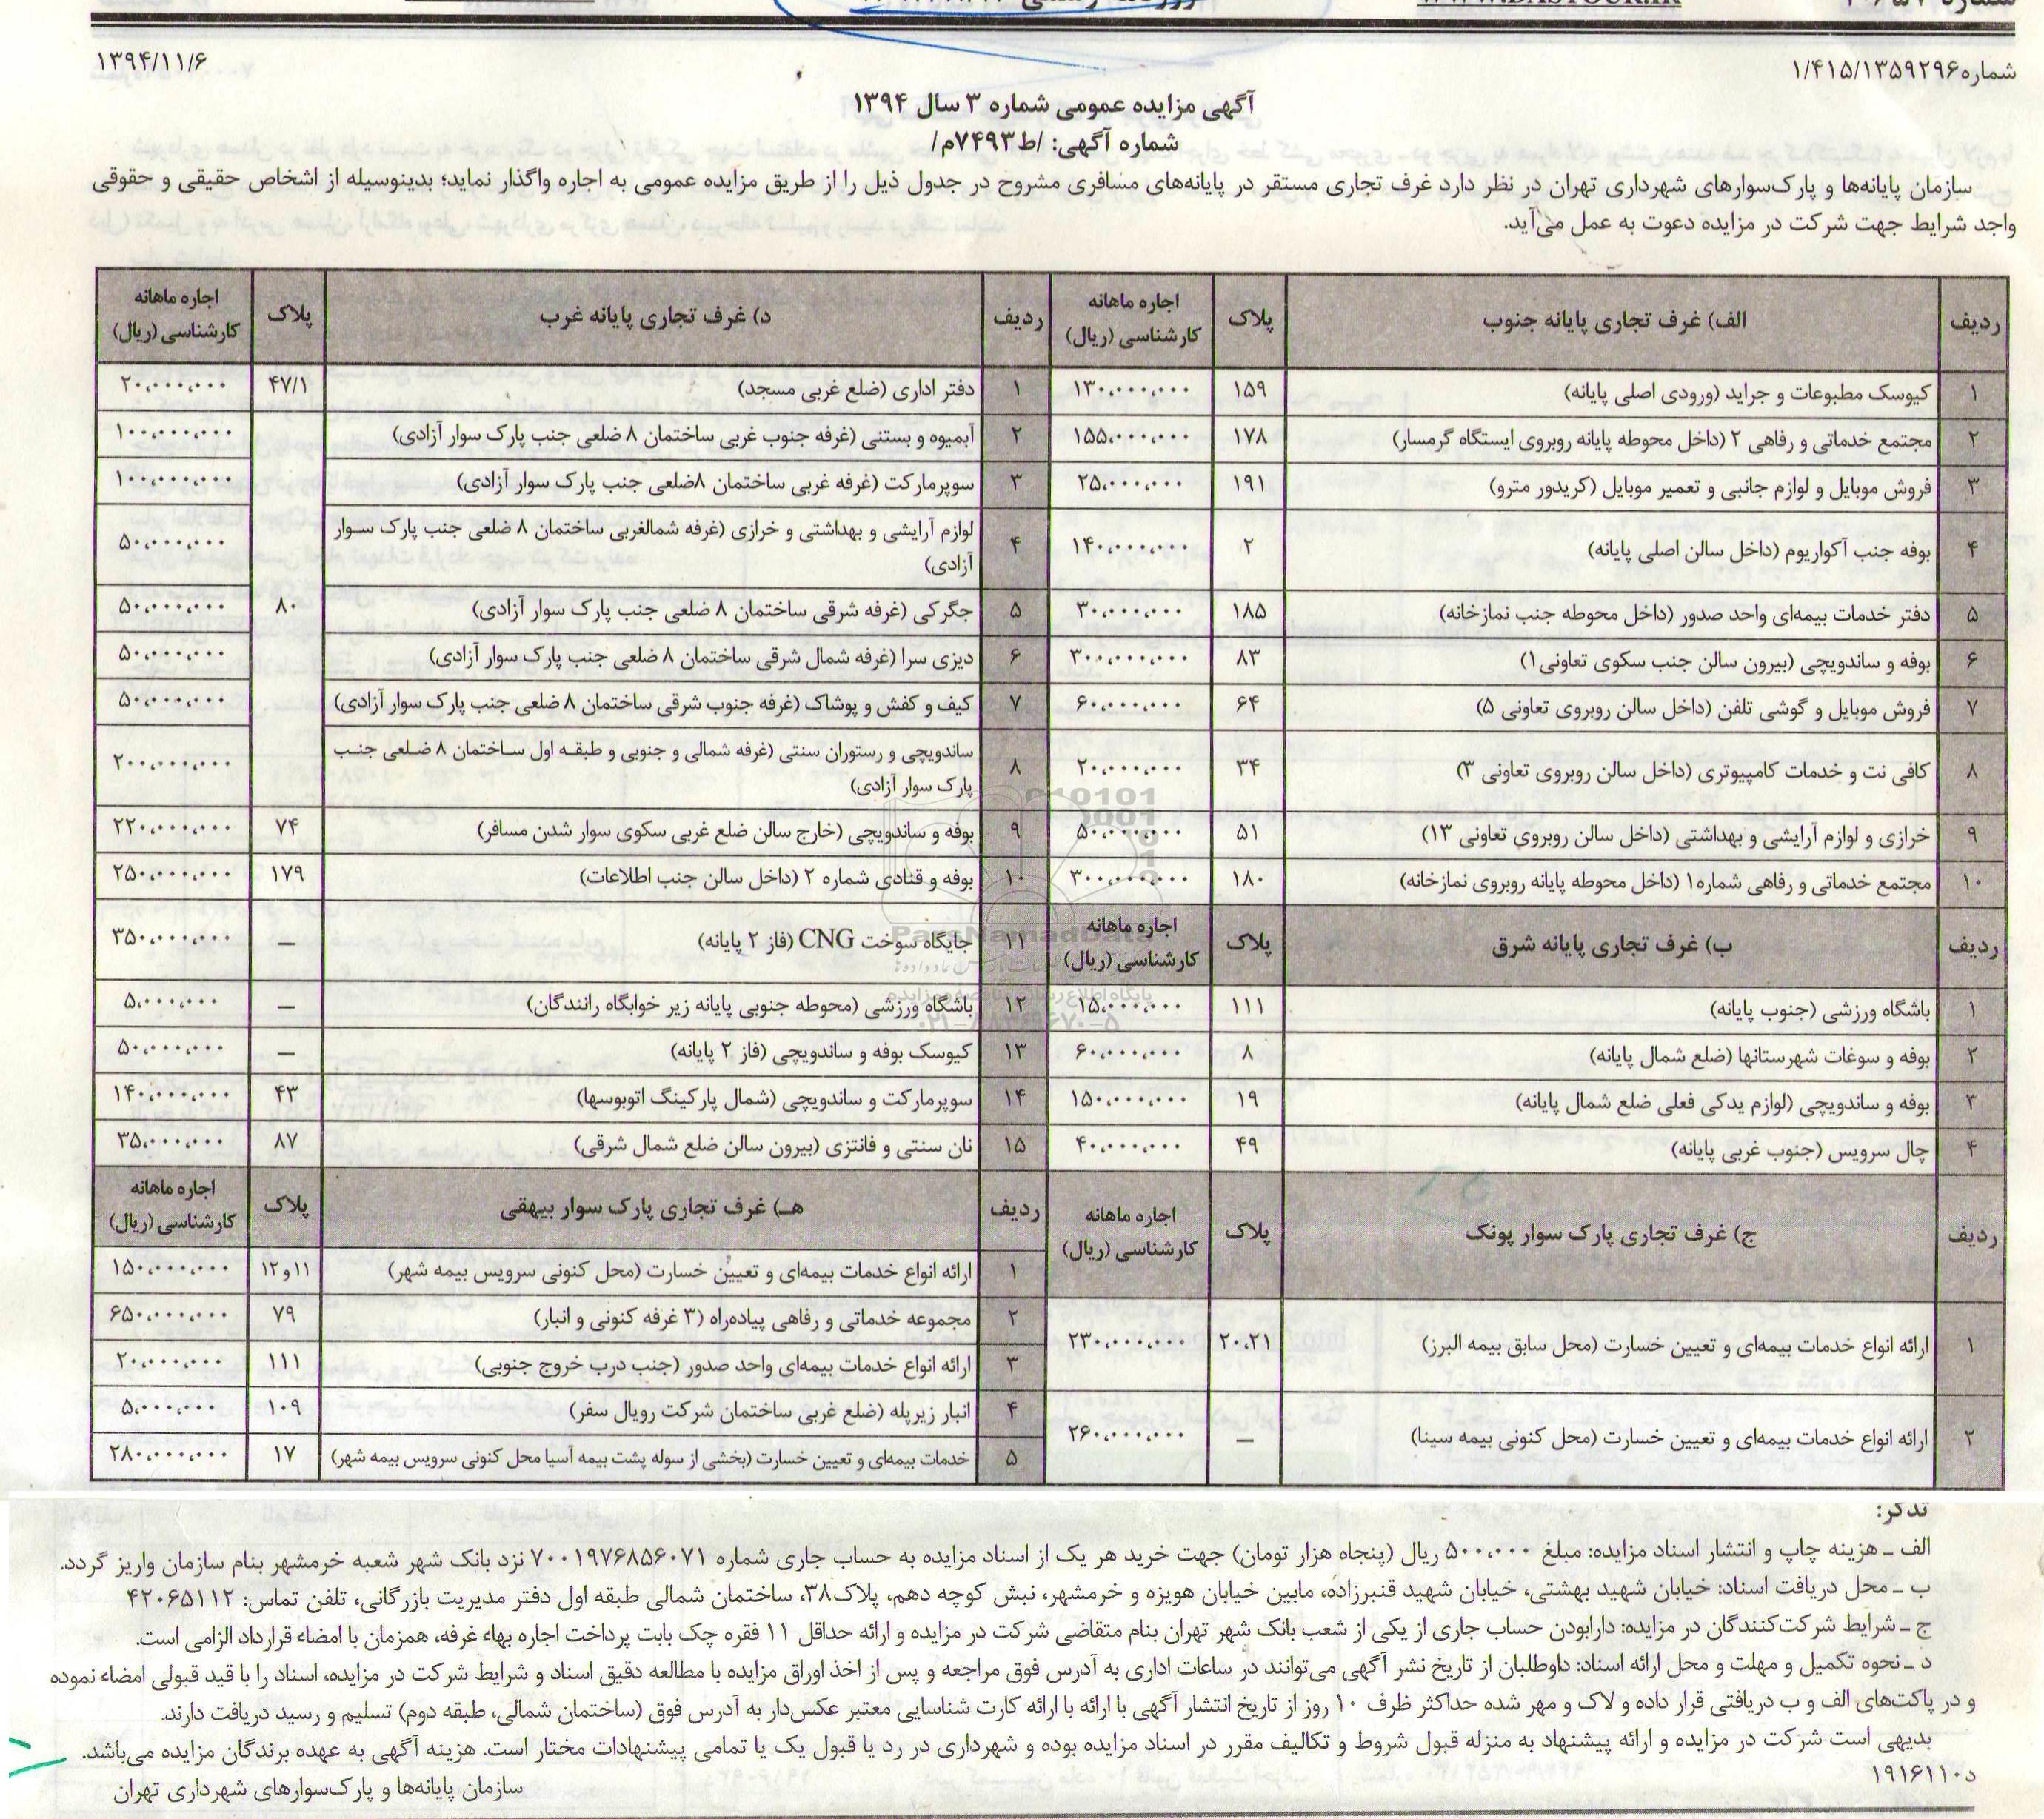 WWW.DASTOUR.IR
شماره۱/۴۱۵/۱۳۵۹۲۹۶
۱۳۹۴/۱۱/۶
آگهی مزایده عمومی شماره ۳ سال ۱۳۹۴
شماره آگهی: /ط۷۴۹۳م/
سازمان پایانه‌ها و پارک‌سوارهای شهرداری تهران در نظر دارد غرف تجاری مستقر در پایانه‌های مسافری مشروح در جدول ذیل را از طریق مزایده عمومی به اجاره واگذار نماید؛ بدینوسیله از اشخاص حقیقی و حقوقی
واجد شرایط جهت شرکت در مزایده دعوت به عمل می‌آید.
ردیف الف) غرف تجاری پایانه جنوب پلاک اجاره ماهانه کارشناسی (ریال)
۱ کیوسک مطبوعات و جراید (ورودی اصلی پایانه) ۱۵۹ ۱۳۰،۰۰۰،۰۰۰
۲ مجتمع خدماتی و رفاهی ۲ (داخل محوطه پایانه روبروی ایستگاه گرمسار) ۱۷۸ ۱۵۵،۰۰۰،۰۰۰
۳ فروش موبایل و لوازم جانبی و تعمیر موبایل (کریدور مترو) ۱۹۱ ۲۵،۰۰۰،۰۰۰
۴ بوفه جنب آکواریوم (داخل سالن اصلی پایانه) ۲ ۱۴۰،۰۰۰،۰۰۰
۵ دفتر خدمات بیمه‌ای واحد صدور (داخل محوطه جنب نمازخانه) ۱۸۵ ۳۰،۰۰۰،۰۰۰
۶ بوفه و ساندویچی (بیرون سالن جنب سکوی تعاونی۱) ۸۳ ۳۰۰،۰۰۰،۰۰۰
۷ فروش موبایل و گوشی تلفن (داخل سالن روبروی تعاونی ۵) ۶۴ ۶۰،۰۰۰،۰۰۰
۸ کافی نت و خدمات کامپیوتری (داخل سالن روبروی تعاونی ۳) ۳۴ ۲۰،۰۰۰،۰۰۰
۹ خرازی و لوازم آرایشی و بهداشتی (داخل سالن روبروی تعاونی ۱۳) ۵۱ ۵۰،۰۰۰،۰۰۰
۱۰ مجتمع خدماتی و رفاهی شماره۱ (داخل محوطه پایانه روبروی نمازخانه) ۱۸۰ ۳۰۰،۰۰۰،۰۰۰
ردیف ب) غرف تجاری پایانه شرق پلاک اجاره ماهانه کارشناسی (ریال)
۱ باشگاه ورزشی (جنوب پایانه) ۱۱۱ ۱۵،۰۰۰،۰۰۰
۲ بوفه و سوغات شهرستانها (ضلع شمال پایانه) ۸ ۶۰،۰۰۰،۰۰۰
۳ بوفه و ساندویچی (لوازم یدکی فعلی ضلع شمال پایانه) ۱۹ ۱۵۰،۰۰۰،۰۰۰
۴ چال سرویس (جنوب غربی پایانه) ۴۹ ۴۰،۰۰۰،۰۰۰
ردیف ج) غرف تجاری پارک سوار پونک پلاک اجاره ماهانه کارشناسی (ریال)
۱ ارائه انواع خدمات بیمه‌ای و تعیین خسارت (محل سابق بیمه البرز) ۲۰،۲۱ ۲۳۰،۰۰۰،۰۰۰
۲ ارائه انواع خدمات بیمه‌ای و تعیین خسارت (محل کنونی بیمه سینا) — ۲۶۰،۰۰۰،۰۰۰
ردیف د) غرف تجاری پایانه غرب پلاک اجاره ماهانه کارشناسی (ریال)
۱ دفتر اداری (ضلع غربی مسجد) ۴۷/۱ ۲۰،۰۰۰،۰۰۰
۲ آبمیوه و بستنی (غرفه جنوب غربی ساختمان ۸ ضلعی جنب پارک سوار آزادی) ۱۰۰،۰۰۰،۰۰۰
۳ سوپرمارکت (غرفه غربی ساختمان ۸ضلعی جنب پارک سوار آزادی) ۱۰۰،۰۰۰،۰۰۰
۴ لوازم آرایشی و بهداشتی و خرازی (غرفه شمالغربی ساختمان ۸ ضلعی جنب پارک سوار آزادی) ۵۰،۰۰۰،۰۰۰
۵ جگرکی (غرفه شرقی ساختمان ۸ ضلعی جنب پارک سوار آزادی) ۸۰ ۵۰،۰۰۰،۰۰۰
۶ دیزی سرا (غرفه شمال شرقی ساختمان ۸ ضلعی جنب پارک سوار آزادی) ۵۰،۰۰۰،۰۰۰
۷ کیف و کفش و پوشاک (غرفه جنوب شرقی ساختمان ۸ ضلعی جنب پارک سوار آزادی) ۵۰،۰۰۰،۰۰۰
۸ ساندویچی و رستوران سنتی (غرفه شمالی و جنوبی و طبقه اول ساختمان ۸ ضلعی جنب پارک سوار آزادی) ۲۰۰،۰۰۰،۰۰۰
۹ بوفه و ساندویچی (خارج سالن ضلع غربی سکوی سوار شدن مسافر) ۷۴ ۲۲۰،۰۰۰،۰۰۰
۱۰ بوفه و قنادی شماره ۲ (داخل سالن جنب اطلاعات) ۱۷۹ ۲۵۰،۰۰۰،۰۰۰
۱۱ جایگاه سوخت CNG (فاز ۲ پایانه) — ۳۵۰،۰۰۰،۰۰۰
۱۲ باشگاه ورزشی (محوطه جنوبی پایانه زیر خوابگاه رانندگان) — ۵،۰۰۰،۰۰۰
۱۳ کیوسک بوفه و ساندویچی (فاز ۲ پایانه) — ۵۰،۰۰۰،۰۰۰
۱۴ سوپرمارکت و ساندویچی (شمال پارکینگ اتوبوسها) ۴۳ ۱۴۰،۰۰۰،۰۰۰
۱۵ نان سنتی و فانتزی (بیرون سالن ضلع شمال شرقی) ۸۷ ۳۵،۰۰۰،۰۰۰
ردیف هـ) غرف تجاری پارک سوار بیهقی پلاک اجاره ماهانه کارشناسی (ریال)
۱ ارائه انواع خدمات بیمه‌ای و تعیین خسارت (محل کنونی سرویس بیمه شهر) ۱۱و۱۲ ۱۵۰،۰۰۰،۰۰۰
۲ مجموعه خدماتی و رفاهی پیاده‌راه (۳ غرفه کنونی و انبار) ۷۹ ۶۵۰،۰۰۰،۰۰۰
۳ ارائه انواع خدمات بیمه‌ای واحد صدور (جنب درب خروج جنوبی) ۱۱۱ ۲۰،۰۰۰،۰۰۰
۴ انبار زیرپله (ضلع غربی ساختمان شرکت رویال سفر) ۱۰۹ ۵،۰۰۰،۰۰۰
۵ خدمات بیمه‌ای و تعیین خسارت (بخشی از سوله پشت بیمه آسیا محل کنونی سرویس بیمه شهر) ۱۷ ۲۸۰،۰۰۰،۰۰۰
ParsNamadData
تذکر:
الف ـ هزینه چاپ و انتشار اسناد مزایده: مبلغ ۵۰۰،۰۰۰ ریال (پنجاه هزار تومان) جهت خرید هر یک از اسناد مزایده به حساب جاری شماره ۷۰۰۱۹۷۶۸۵۶۰۷۱ نزد بانک شهر شعبه خرمشهر بنام سازمان واریز گردد.
ب ـ محل دریافت اسناد: خیابان شهید بهشتی، خیابان شهید قنبرزاده، مابین خیابان هویزه و خرمشهر، نبش کوچه دهم، پلاک۳۸، ساختمان شمالی طبقه اول دفتر مدیریت بازرگانی، تلفن تماس: ۴۲۰۶۵۱۱۲
ج ـ شرایط شرکت‌کنندگان در مزایده: دارابودن حساب جاری از یکی از شعب بانک شهر تهران بنام متقاضی شرکت در مزایده و ارائه حداقل ۱۱ فقره چک بابت پرداخت اجاره بهاء غرفه، همزمان با امضاء قرارداد الزامی است.
د ـ نحوه تکمیل و مهلت و محل ارائه اسناد: داوطلبان از تاریخ نشر آگهی می‌توانند در ساعات اداری به آدرس فوق مراجعه و پس از اخذ اوراق مزایده با مطالعه دقیق اسناد و شرایط شرکت در مزایده، اسناد را با قید قبولی امضاء نموده
و در پاکت‌های الف و ب دریافتی قرار داده و لاک و مهر شده حداکثر ظرف ۱۰ روز از تاریخ انتشار آگهی با ارائه با ارائه کارت شناسایی معتبر عکس‌دار به آدرس فوق (ساختمان شمالی، طبقه دوم) تسلیم و رسید دریافت دارند.
بدیهی است شرکت در مزایده و ارائه پیشنهاد به منزله قبول شروط و تکالیف مقرر در اسناد مزایده بوده و شهرداری در رد یا قبول یک یا تمامی پیشنهادات مختار است. هزینه آگهی به عهده برندگان مزایده می‌باشد.
د۱۹۱۶۱۱۰
سازمان پایانه‌ها و پارک‌سوارهای شهرداری تهران